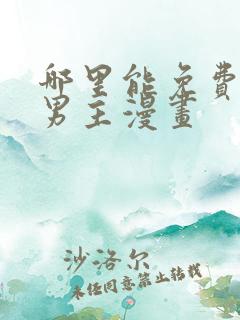 哪里能免費
男主漫畫
沙洛尔
未经同意禁止转载